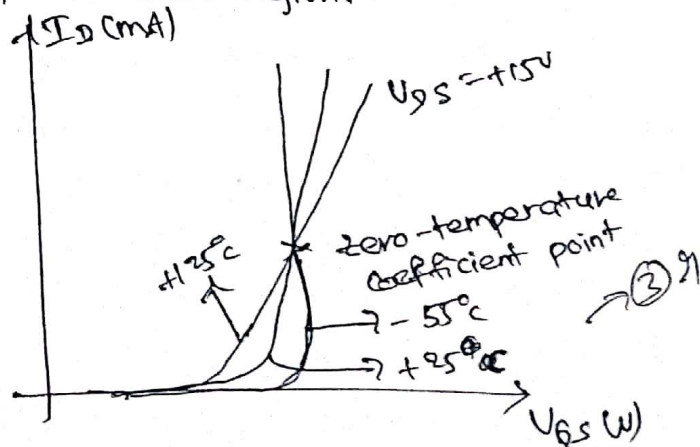 I_D (mA)
V_DS = +15V
zero-temperature
coefficient point
+125°C
→ -55°C
→ +25°C
③
V_GS (V)